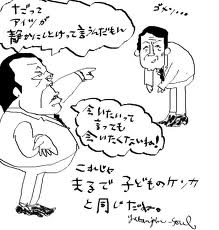 だって
アイツが
静かにしとけって言うんだもん
ゴメン...
会いたいって
言っても
会いたくないね!
これじゃ
まるで 子どものケンカ
と同じだね。